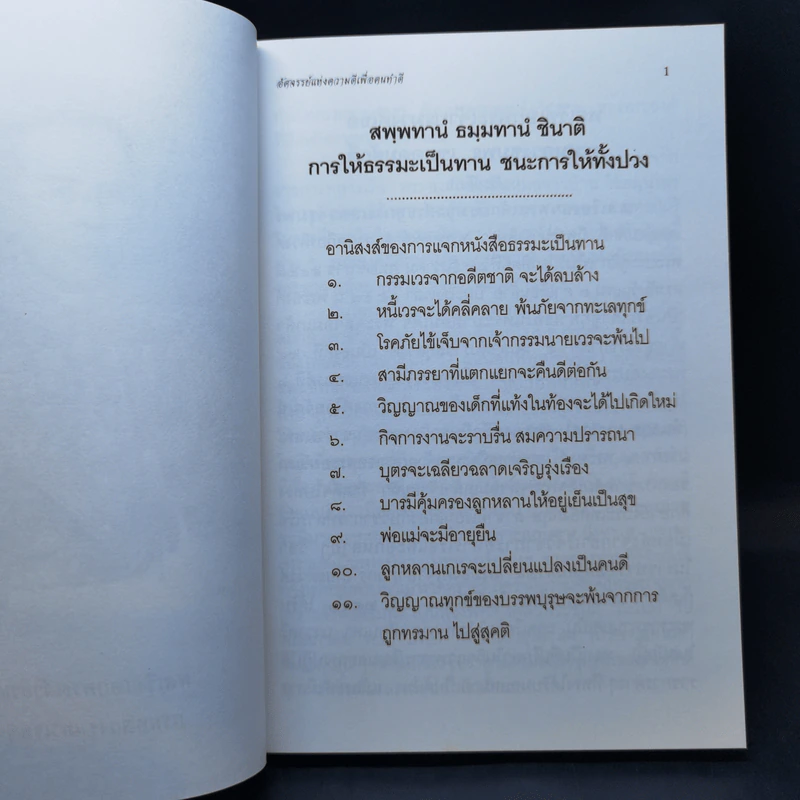 อัศจรรย์แห่งความดีเพื่อคนทำดี
1
สพฺพทานํ ธมฺมทานํ ชินาติ
การให้ธรรมะเป็นทาน ชนะการให้ทั้งปวง
อานิสงส์ของการแจกหนังสือธรรมะเป็นทาน
๑. กรรมเวรจากอดีตชาติ จะได้ลบล้าง
๒. หนี้เวรจะได้คลี่คลาย พ้นภัยจากทะเลทุกข์
๓. โรคภัยไข้เจ็บจากเจ้ากรรมนายเวรจะพ้นไป
๔. สามีภรรยาที่แตกแยกจะคืนดีต่อกัน
๕. วิญญาณของเด็กที่แท้งในท้องจะได้ไปเกิดใหม่
๖. กิจการงานจะราบรื่น สมความปรารถนา
๗. บุตรจะเฉลียวฉลาดเจริญรุ่งเรือง
๘. บารมีคุ้มครองลูกหลานให้อยู่เย็นเป็นสุข
๙. พ่อแม่จะมีอายุยืน
๑๐. ลูกหลานเกเรจะเปลี่ยนแปลงเป็นคนดี
๑๑. วิญญาณทุกข์ของบรรพบุรุษจะพ้นจากการ
ถูกทรมาน ไปสู่สุคติ